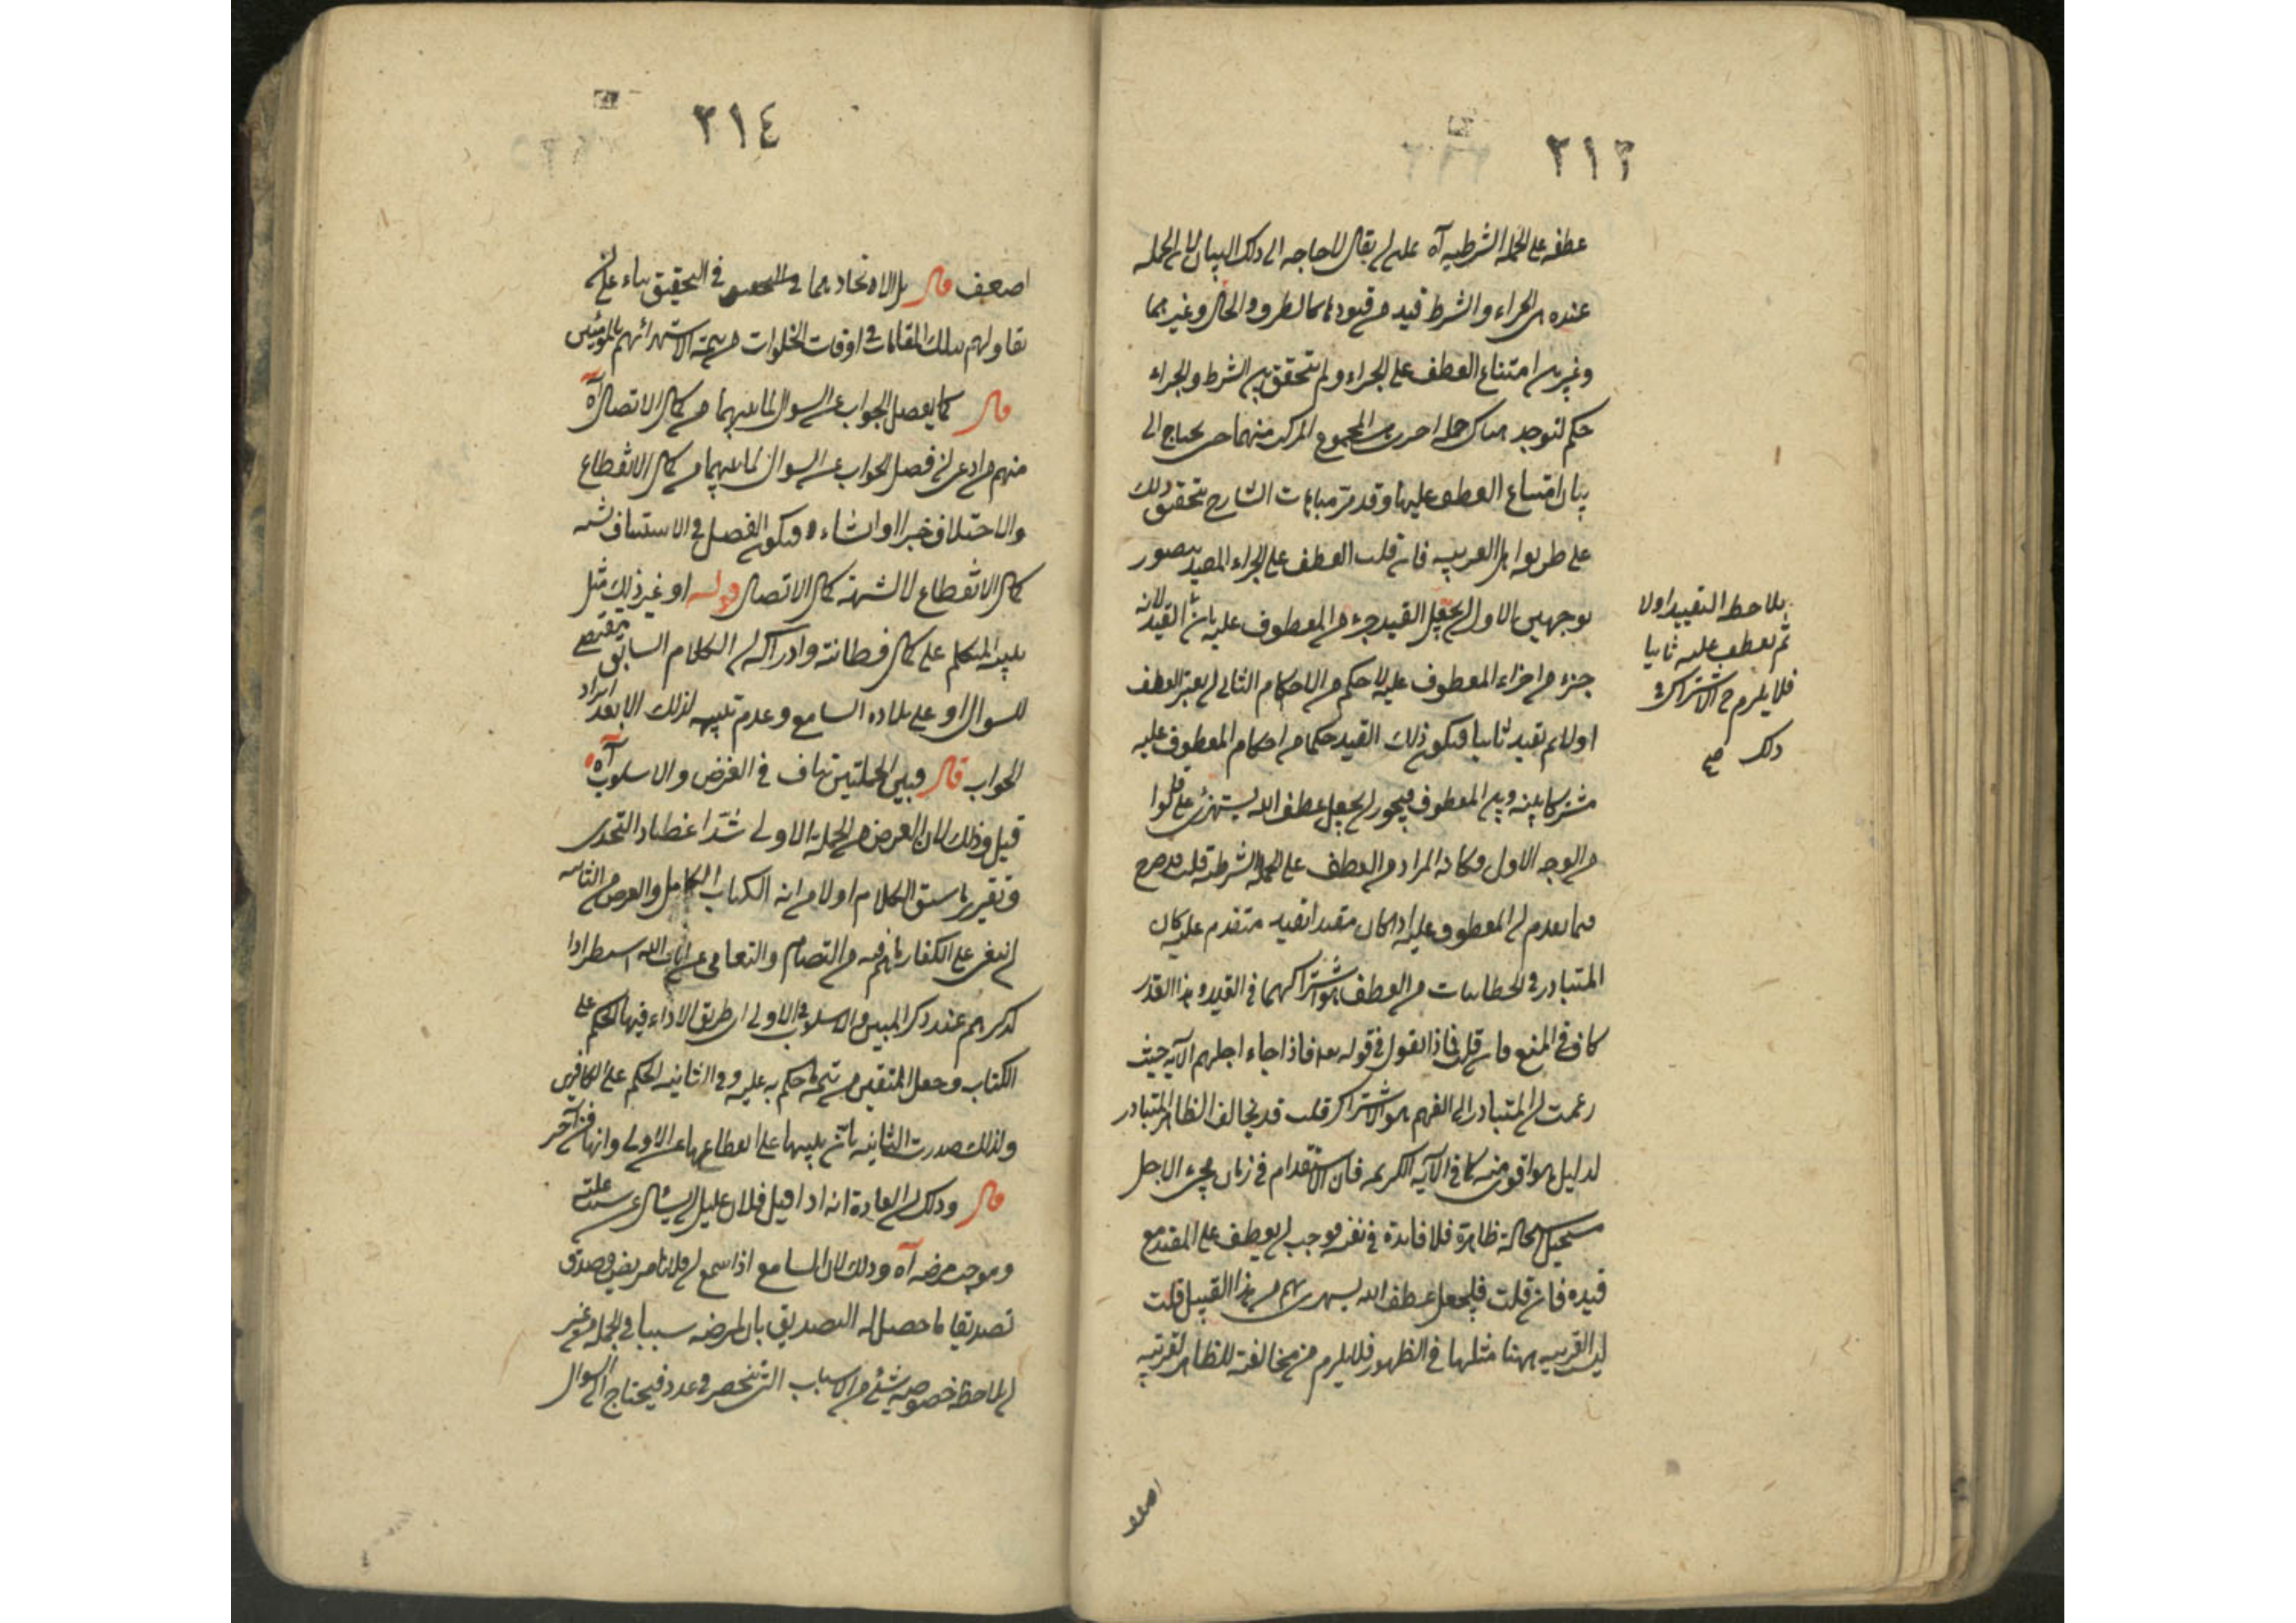 ٢١٣
عطفه على الجملة الشرطية آه على ان يقال لا حاجة الى ذلك البيان لان الجملة
عنده هى الجزاء والشرط قيد من قيودها كالظروف والحال وغيرهما
وغير من امتناع العطف على الجزاء ولم يتحقق بين الشرط والجزاء
حكم لتوجد هناك جملة اخرى هى المجموع المركب منهما حتى يحتاج الى
بيان امتناع العطف عليها وقد مر مباحث الشارح تحقيق ذلك
على طريقة اهل العربية فان قلت العطف على الجزاء المقيد يتصور
بوجهين الاول ان يجعل القيد جزء من المعطوف عليه لان القيد
جزء من اجزاء المعطوف عليه لا حكم من الاحكام الثانى ان يعتبر العطف
اولا ثم تقيد ثانيا فيكون ذلك القيد حكما من احكام المعطوف عليه
مشتركا بينه وبين المعطوف فيجوز ان يجعل عطف الله يستهزئ على قالوا
من الوجه الاول وكان المراد من العطف على الجملة الشرطية قلت قد صرح
فيما تقدم ان المعطوف عليه اذا كان مقيدا بقيد متقدم عليه كان
المتبادر فى الخطابيات من العطف هو اشتراكهما فى القيد وهذا القدر
كاف فى المنع فان قلت فماذا تقول فى قوله تعالى فاذا جاء اجلهم الآية حيث
زعمت ان المتبادر الى الفهم هو الاشتراك قلت قد يخالف الظاهر المتبادر
لدليل هو اقوى منه كما فى الآية الكريمة فان الاستقدام فى زمان مجئ الاجل
مستحيل استحالة ظاهرة فلا فائدة فى نفيه فوجب ان يعطف على المقيد مع
قيده فان قلت فليجعل عطف الله يستهزئ بهم من هذا القبيل قلت
ليس القرينة ههنا مثلها فى الظهور فلا يلزم من مخالفة الظاهر لقرينة
بملاحظة التقييد اولا
ثم يعطف عليه ثانيا
فلا يلزم ح الاشتراك فى
ذلك صح
اضعف
٢١٤
اضعف قال بل الاتحاد بهما فى التحقيق بناء على ان
تقاولهم بتلك المقالات فى اوقات الخلوات من تتمة الاستهزائهم بالمؤمنين
قال كما يفصل الجواب عن السؤال لما بينهما من كمال الاتصال آه
منهم من ادعى ان فصل الجواب عن السؤال لما بينهما من كمال الانقطاع
والاختلاف خبرا وانشاء فيكون الفصل فى الاستيناف لشبه
كمال الانقطاع لا لشبه كمال الاتصال قوله او غير ذلك مثل
تنبيه المتكلم على كمال فطانته وادراكه ان الكلام السابق مقتض
للسؤال او على بلادة السامع وعدم تنبهه لذلك الا بعد ايراد
الجواب قال فبين الجملتين تناف فى الغرض والاسلوب آه
قيل وذلك لان الغرض من الجملة الاولى شد اعضاد التحدى
وتقرير ما سبق الكلام اولا من انه الكتاب الكامل والغرض من الثانية
ان ينعى على الكفار ما هم فيه من التصام والتعامى عن آيات الله استطرادا
لذكرهم عند ذكر المتقين والاسلوب فى الاولى اى طريق الاداء فيها الحكم على
الكتاب وجعل المتقين من تتمة ما حكم به عليه وفى الثانية الحكم على الكافرين
ولذلك صدرت الثانية بان تنبيها على انقطاعها عن الاولى وانها فن آخر
قال وذلك ان العادة انه اذا قيل فلان عليل ان يسأل عن سبب علته
وموجب مرضه آه وذلك لان السامع اذا سمع ان فلانا مريض وصدق
تصديقا ما حصل له التصديق بان لمرضه سببا فى الجملة من غير
ان يلاحظ خصوصية شئ من الاسباب التى تنحصر فى عدد فيحتاج الى السؤال